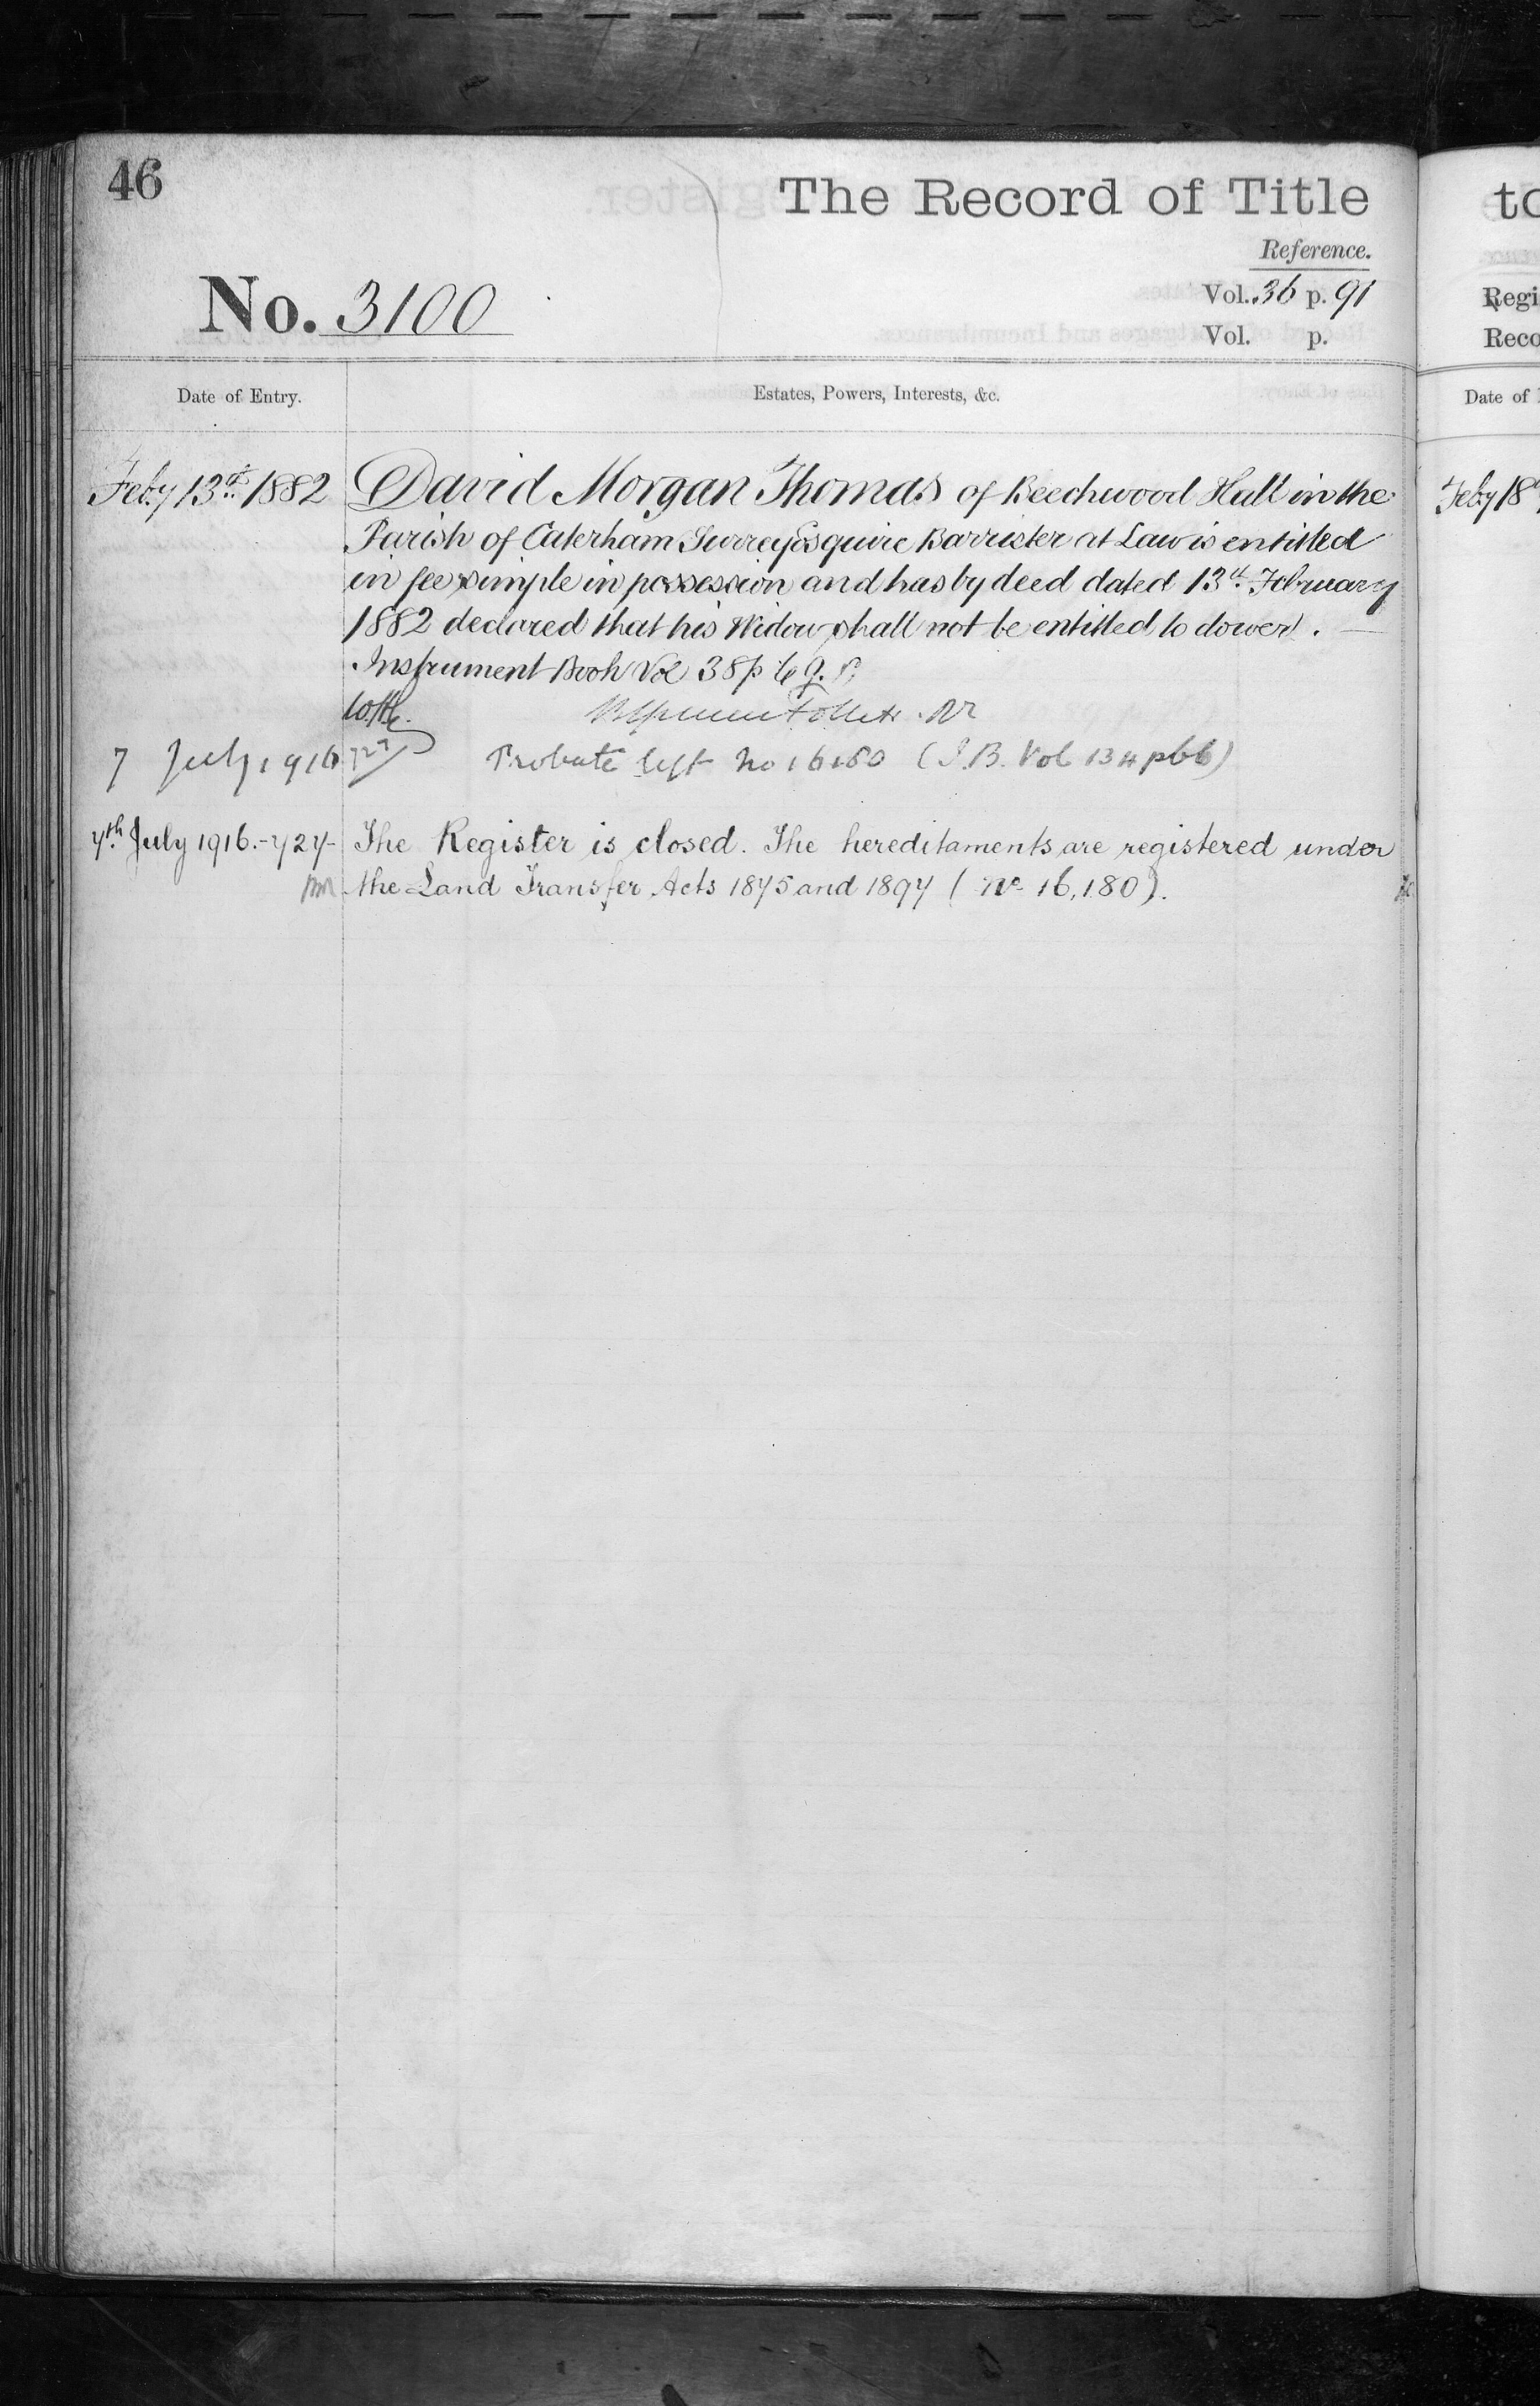 46
The Record of Title
Reference.
No. 3100
Vol. 36 p. 91
Vol. p.
Date of Entry.
Estates, Powers, Interests, &c.
Feby 13th 1882
David Morgan Thomas of Beechwood Hall in the
Parish of Caterham Surrey Esquire Barrister at Law is entitled
in fee simple in possession and has by deed dated 13th February
1882 declared that his Widow shall not be entitled to dower. —
Instrument Book Vol 38 p 69.
7 July 1916 727
Probate left No 16180 (I.B. Vol 134 p66)
7th July 1916.-727-
The Register is closed. The hereditaments are registered under
the Land Transfer Acts 1875 and 1897 (No 16,180).
to
Regi
Reco
Date of
Feby 18